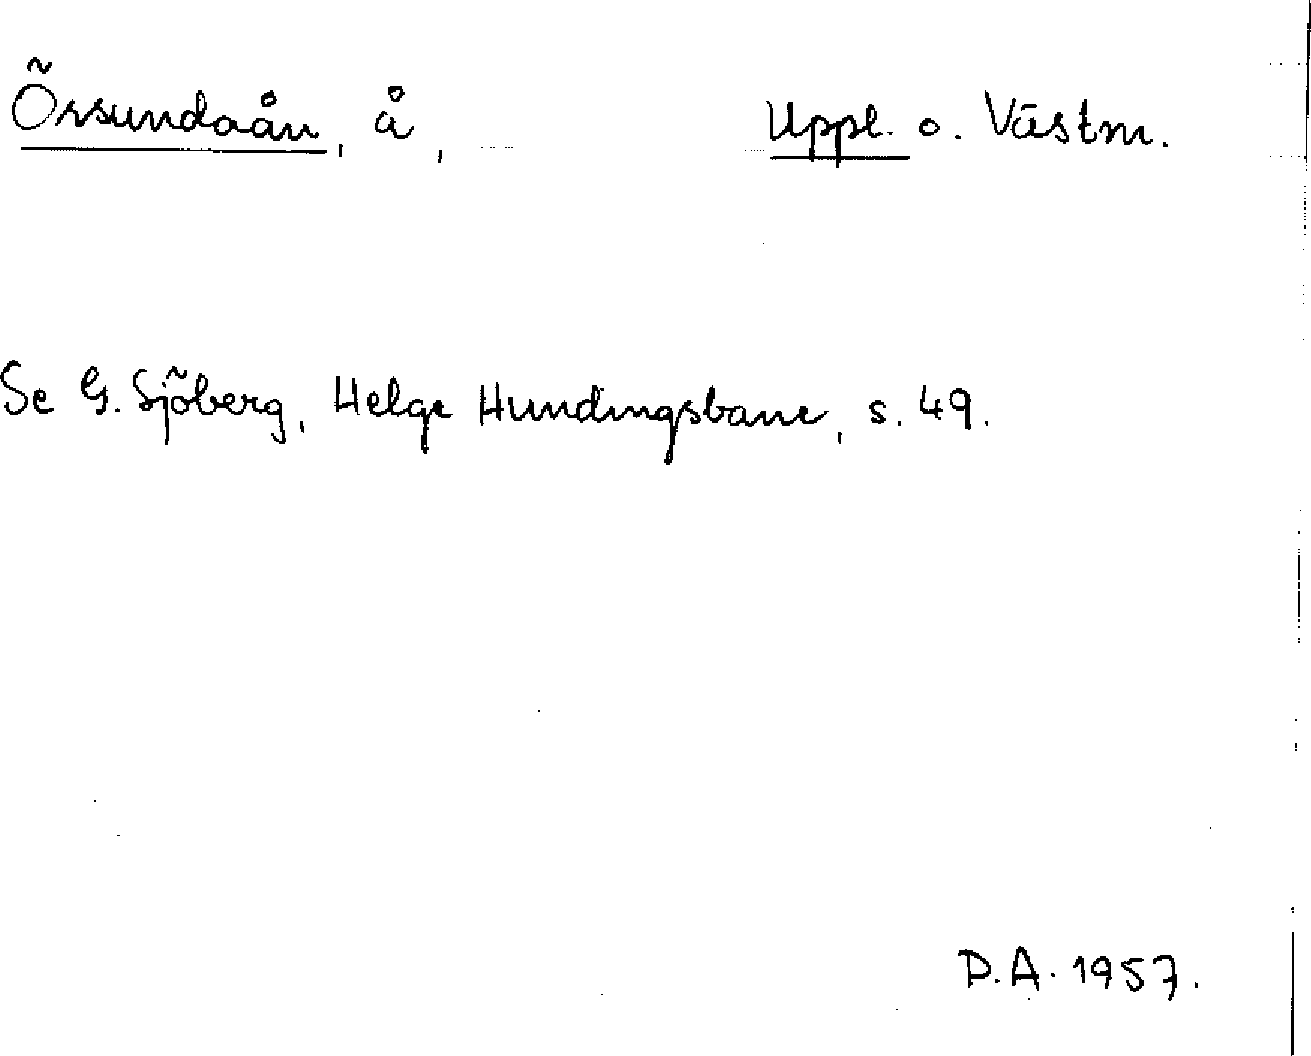 Örsundaån, å, Uppl. o. Västm.
Se G. Sjöberg, Helge Hundingsbane, s. 49.
D.A. 1957.